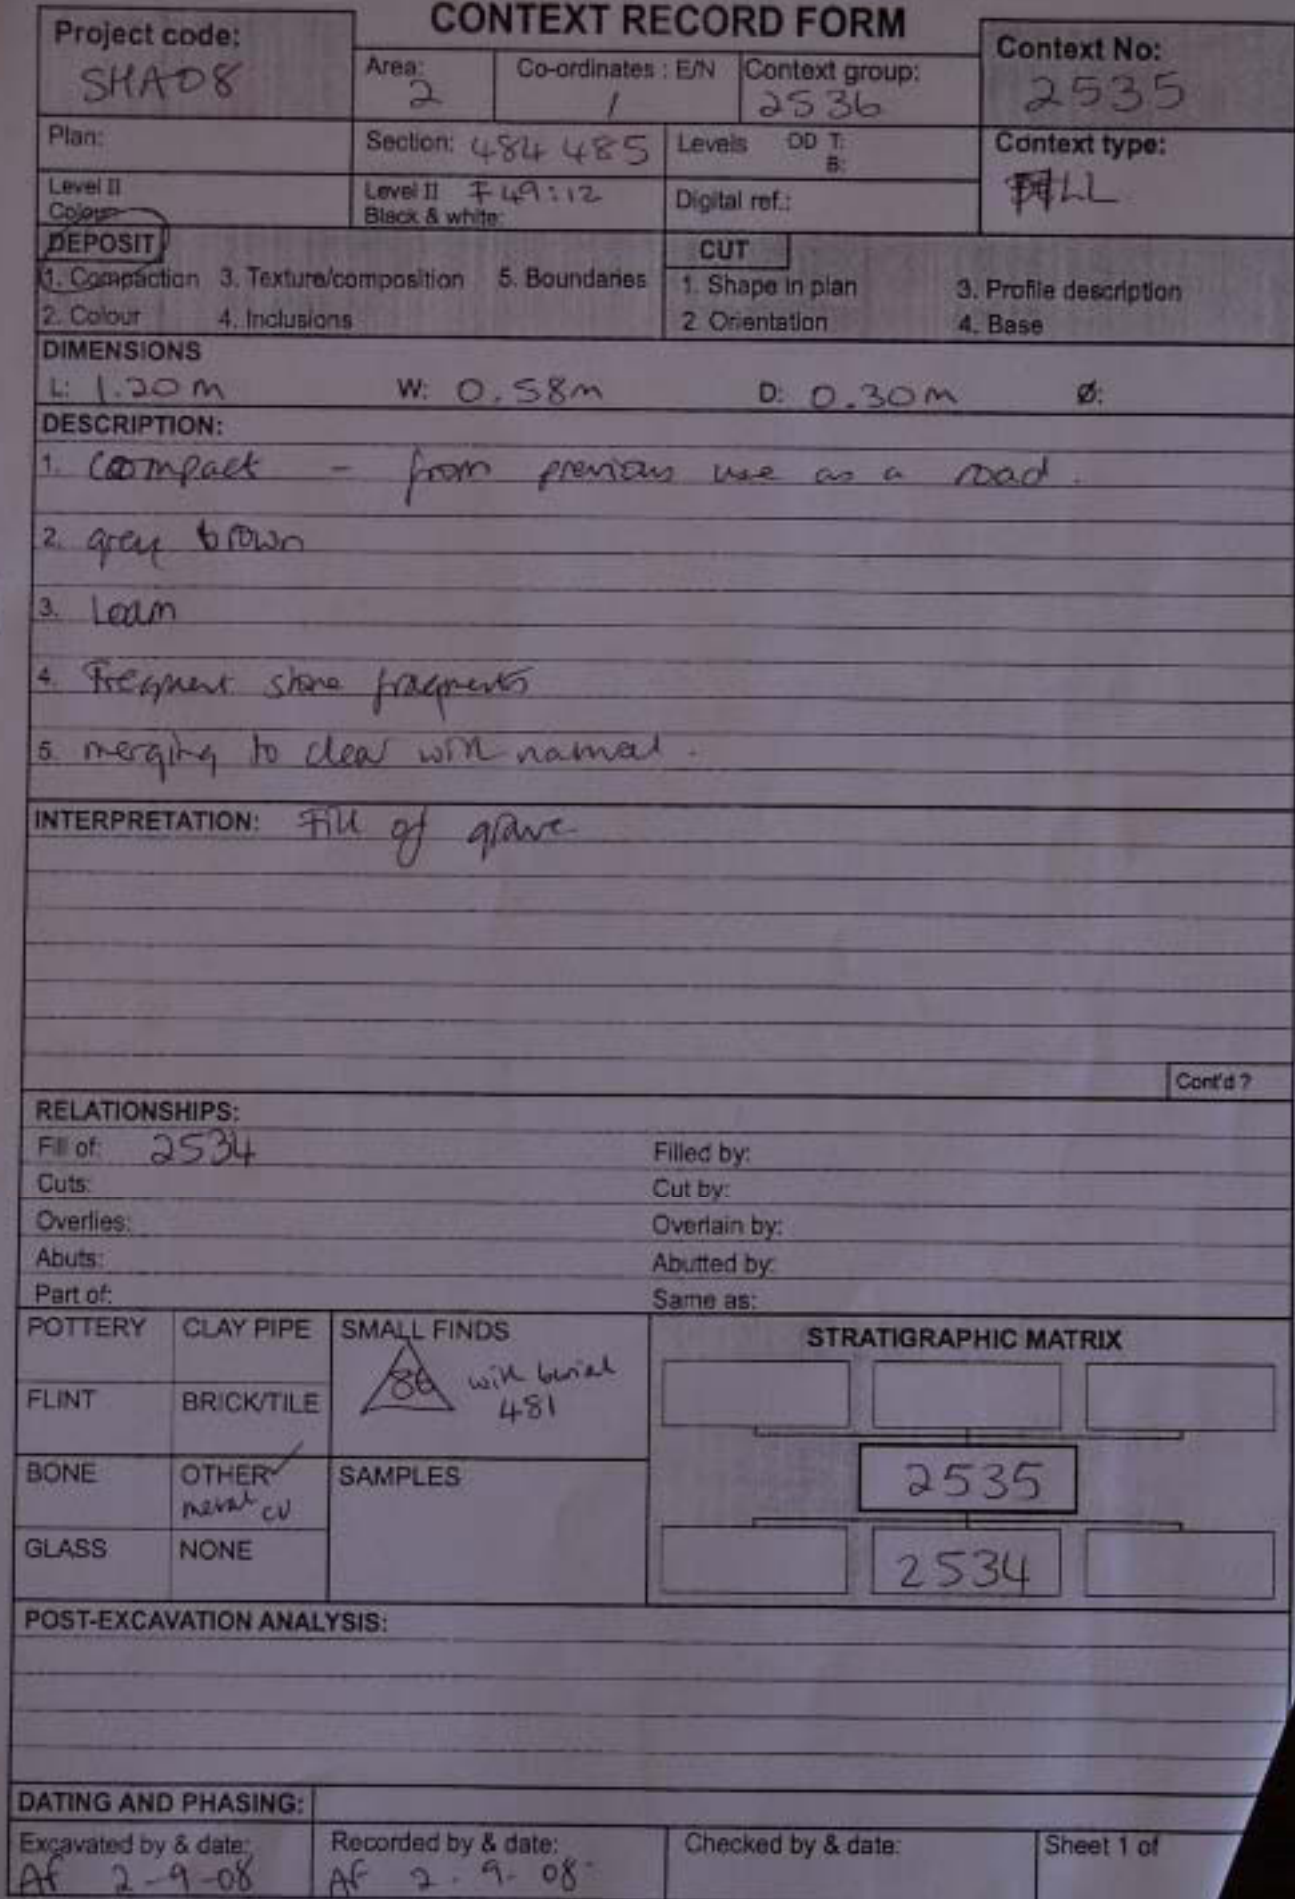 CONTEXT RECORD FORM
Project code:
SHA08
Area:
2
Co-ordinates : E/N
/
Context group:
2536
Context No:
2535
Plan:
Section: 484 485
Levels OD T:
B:
Context type:
FILL
Level II
Colour
Level II F49:12
Black & white:
Digital ref.:
DEPOSIT
1. Compaction 3. Texture/composition 5. Boundaries
2. Colour 4. Inclusions
CUT
1. Shape in plan 3. Profile description
2. Orientation 4. Base
DIMENSIONS
L: 1.20m W: 0.58m D: 0.30m Ø:
DESCRIPTION:
1. Compact - from previous use as a road.
2. grey brown
3. Loam
4. Frequent stone fragments
5. merging to clear with natural.
INTERPRETATION: Fill of grave
Cont'd ?
RELATIONSHIPS:
Fill of: 2534 Filled by:
Cuts: Cut by:
Overlies: Overlain by:
Abuts: Abutted by:
Part of: Same as:
POTTERY CLAY PIPE SMALL FINDS
86 with burial
481
FLINT BRICK/TILE
BONE OTHER ✓
metal cu
SAMPLES
GLASS NONE
STRATIGRAPHIC MATRIX
2535
2534
POST-EXCAVATION ANALYSIS:
DATING AND PHASING:
Excavated by & date:
AF 2-9-08
Recorded by & date:
AF 2.9.08
Checked by & date:
Sheet 1 of